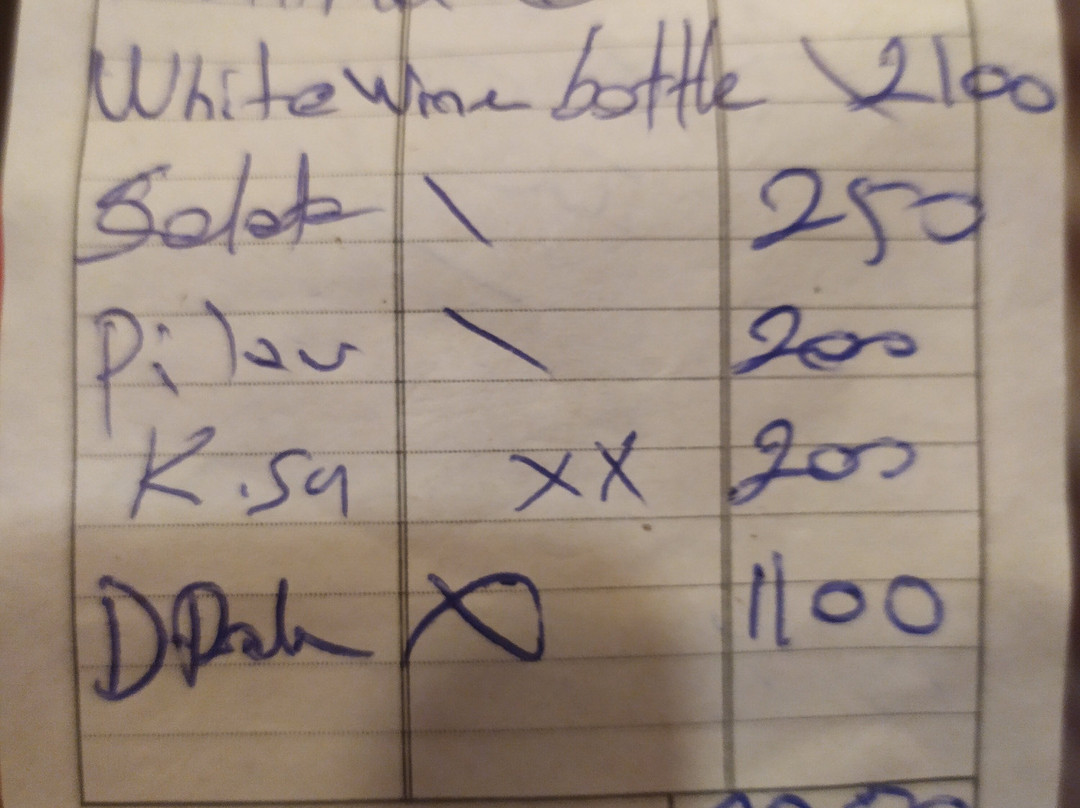 White Wine bottle \ 2100
Salata \ 250
Pilav \ 200
K.sa XX 200
1100